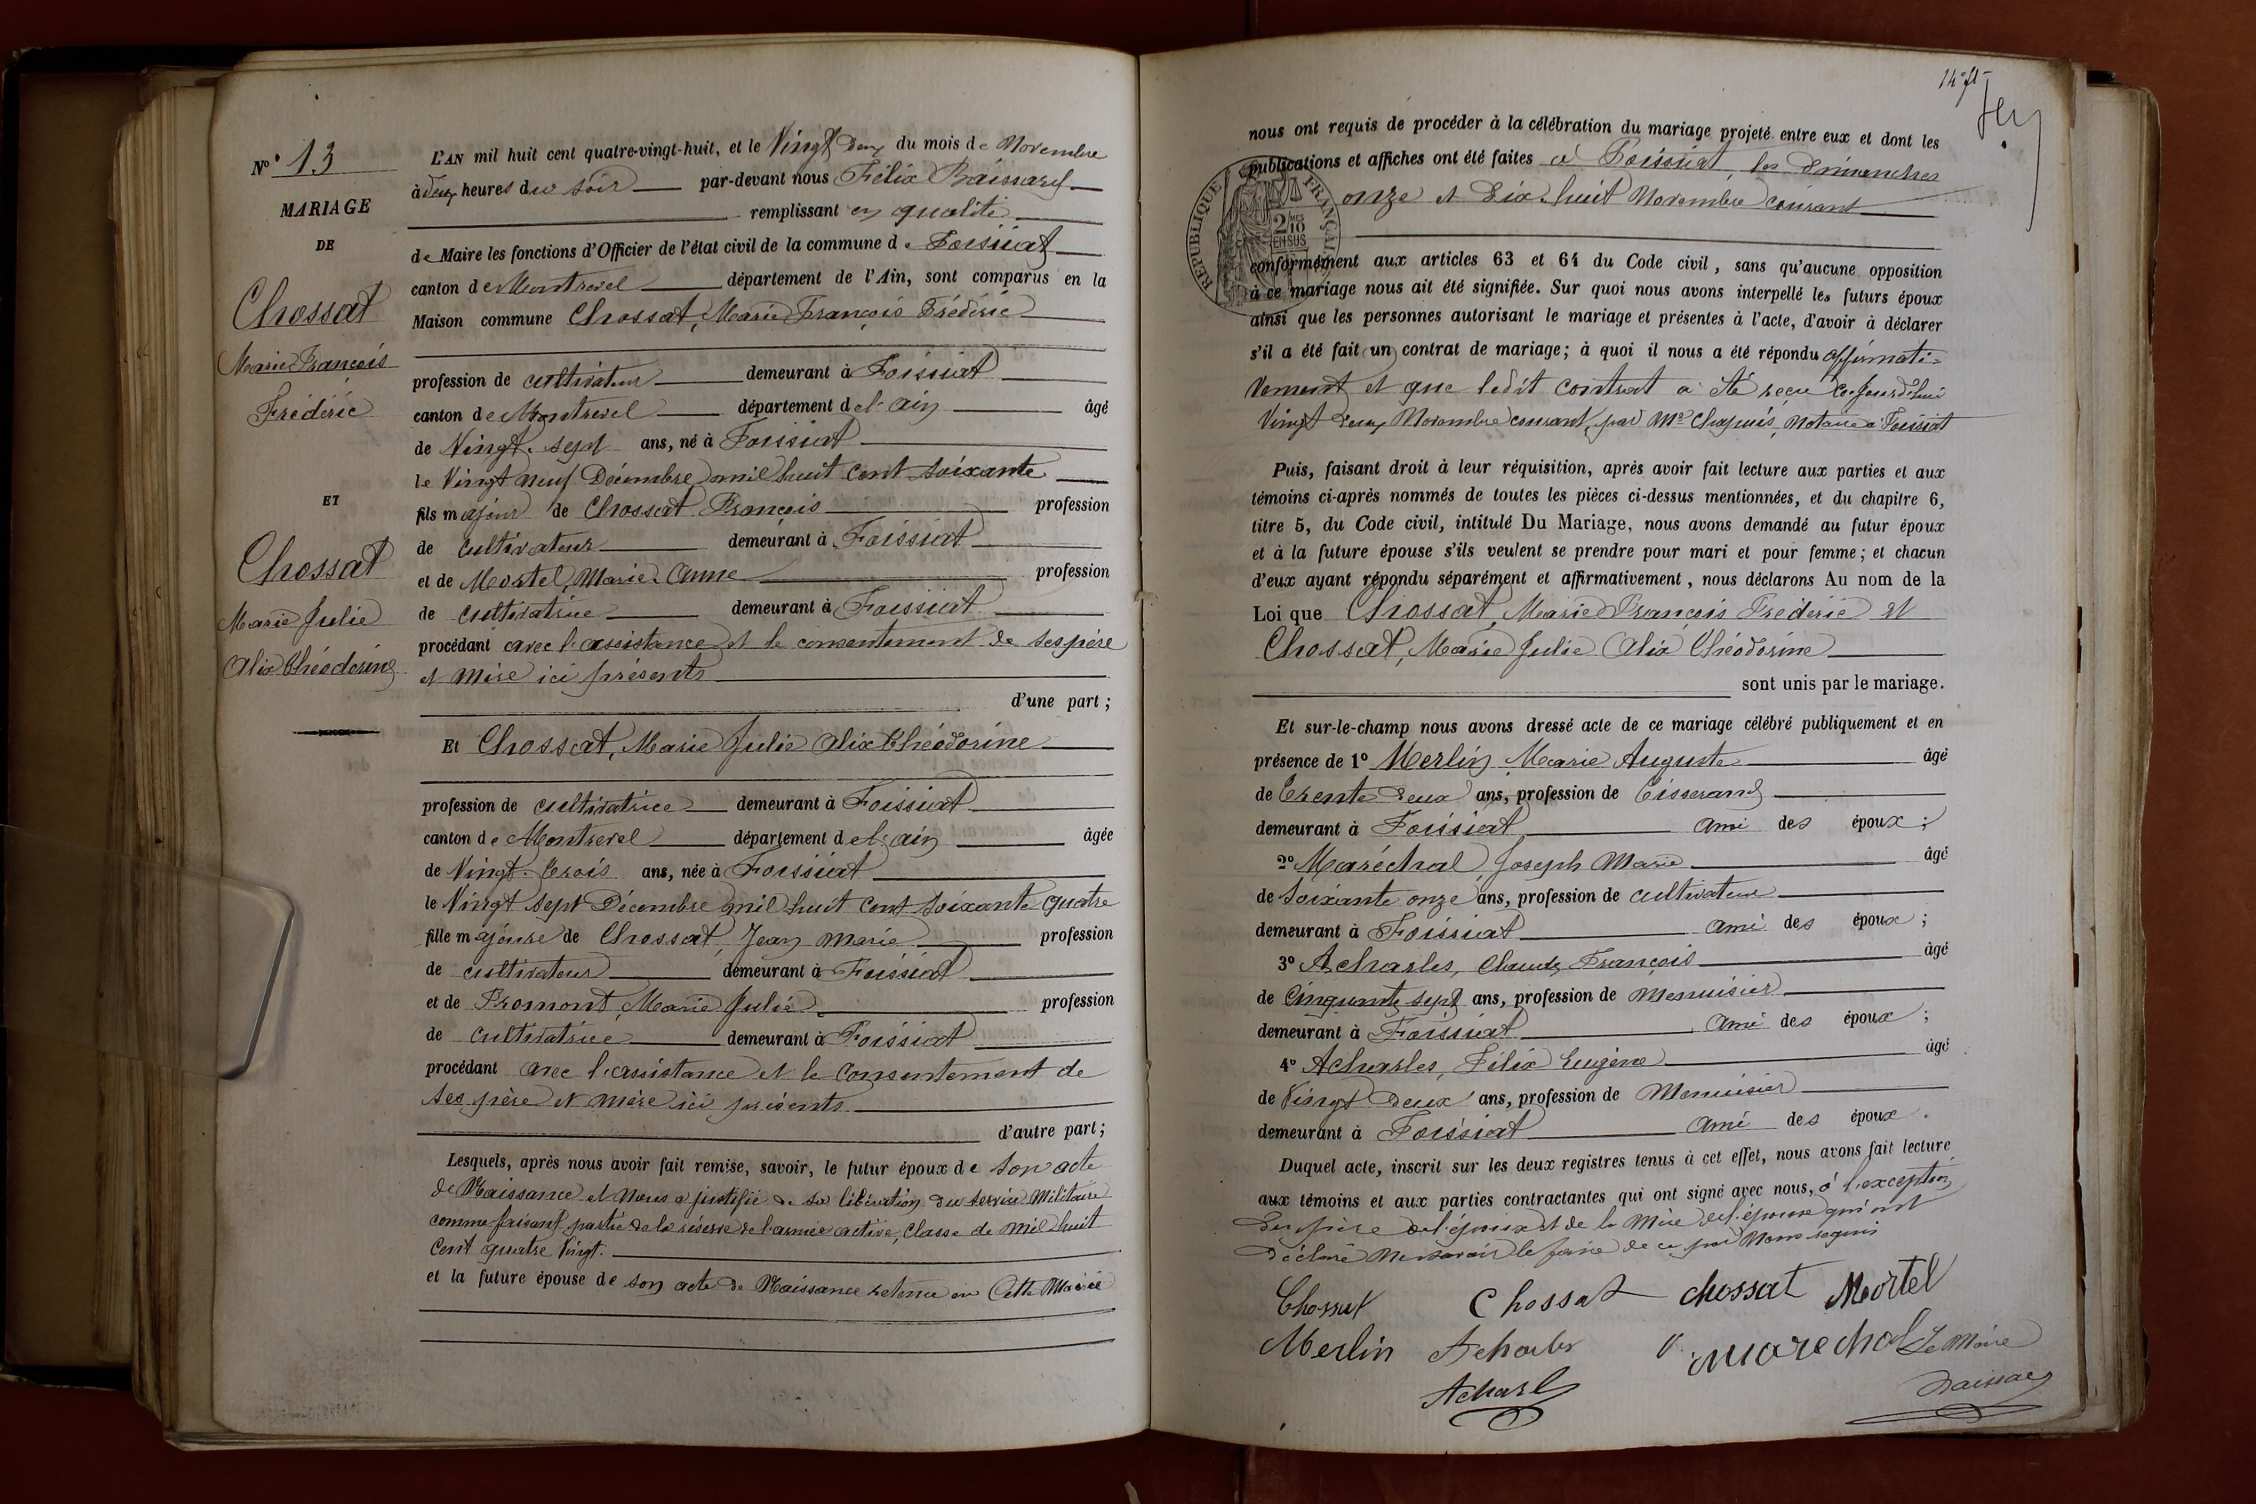 N° 13
MARIAGE
DE
Chossat
Marie François
Frédéric
ET
Chossat
Marie Julie
Alix Théodorine
L'AN mil huit cent quatre-vingt-huit, et le Vingt deux du mois de Novembre
à deux heures du soir par-devant nous Félix
remplissant en qualité
de Maire les fonctions d'Officier de l'état civil de la commune de Foissiat
canton de Montrevel département de l'Ain, sont comparus en la
Maison commune Chossat, Marie François Frédéric
profession de cultivateur demeurant à Foissiat
canton de Montrevel département de l'ain âgé
de Vingt-sept ans, né à Foissiat
le Vingt neuf Décembre mil huit cent soixante
fils majeur de Chossat François profession
de cultivateur demeurant à Foissiat
et de Mortel Marie-Anne profession
de cultivatrice demeurant à Foissiat
procédant avec l'assistance et le consentement de ses père
et mère ici présents
d'une part ;
Et Chossat, Marie Julie Alix Théodorine
profession de cultivatrice demeurant à Foissiat
canton de Montrevel département de l'ain âgée
de Vingt-trois ans, née à Foissiat
le Vingt sept Décembre mil huit cent soixante quatre
fille majeure de Chossat Jean Marie profession
de cultivateur demeurant à Foissiat
et de Fromont, Marie Julie profession
de cultivatrice demeurant à Foissiat
procédant avec l'assistance et le consentement de
ses père et mère ici présents
d'autre part ;
Lesquels, après nous avoir fait remise, savoir, le futur époux de son acte
de Naissance et nous a justifié de sa libération du service militaire
comme faisant partie de la réserve de l'armée active, classe de mil huit
cent quatre vingt.
et la future épouse de son acte de Naissance retenu en cette Mairie
14 f
nous ont requis de procéder à la célébration du mariage projeté entre eux et dont les
publications et affiches ont été faites à Foissiat, les dimanches
onze et dix-huit Novembre courant
RÉPUBLIQUE FRANÇAISE
2/10 EN SUS
conformément aux articles 63 et 64 du Code civil, sans qu'aucune opposition
à ce mariage nous ait été signifiée. Sur quoi nous avons interpellé les futurs époux
ainsi que les personnes autorisant le mariage et présentes à l'acte, d'avoir à déclarer
s'il a été fait un contrat de mariage ; à quoi il nous a été répondu affirmati=
vement et que ledit contrat a été reçu ce jourd'hui
Vingt deux Novembre courant, par Me Chapuis, Notaire à Foissiat
Puis, faisant droit à leur réquisition, après avoir fait lecture aux parties et aux
témoins ci-après nommés de toutes les pièces ci-dessus mentionnées, et du chapitre 6,
titre 5, du Code civil, intitulé Du Mariage, nous avons demandé au futur époux
et à la future épouse s'ils veulent se prendre pour mari et pour femme ; et chacun
d'eux ayant répondu séparément et affirmativement, nous déclarons Au nom de la
Loi que Chossat, Marie François Frédéric et
Chossat, Marie Julie Alix Théodorine
sont unis par le mariage.
Et sur-le-champ nous avons dressé acte de ce mariage célébré publiquement et en
présence de 1° Merlin Marie Auguste âgé
de Trente deux ans, profession de Tisserand
demeurant à Foissiat ami des époux ;
2° Maréchal Joseph Marie âgé
de soixante onze ans, profession de cultivateur
demeurant à Foissiat ami des époux ;
3° Acharles, Claude François âgé
de Cinquante sept ans, profession de Menuisier
demeurant à Foissiat ami des époux ;
4° Acharles, Félix Eugène âgé
de Vingt deux ans, profession de Menuisier
demeurant à Foissiat ami des époux.
Duquel acte, inscrit sur les deux registres tenus à cet effet, nous avons fait lecture
aux témoins et aux parties contractantes qui ont signé avec nous, à l'exception
du père de l'époux et de la Mère de l'épouse qui ont
déclaré ne savoir le faire de ce par nous requis
Chossat Chossat chossat Mortel
Merlin Acharles marechal Le Maire
Acharles